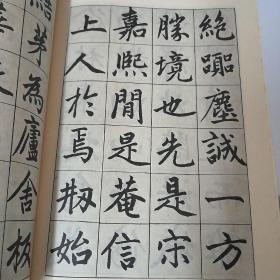 絕躅塵誠一方
勝境也先是宋
嘉熙間是菴信
上人於焉剏始
結茅為廬舍板